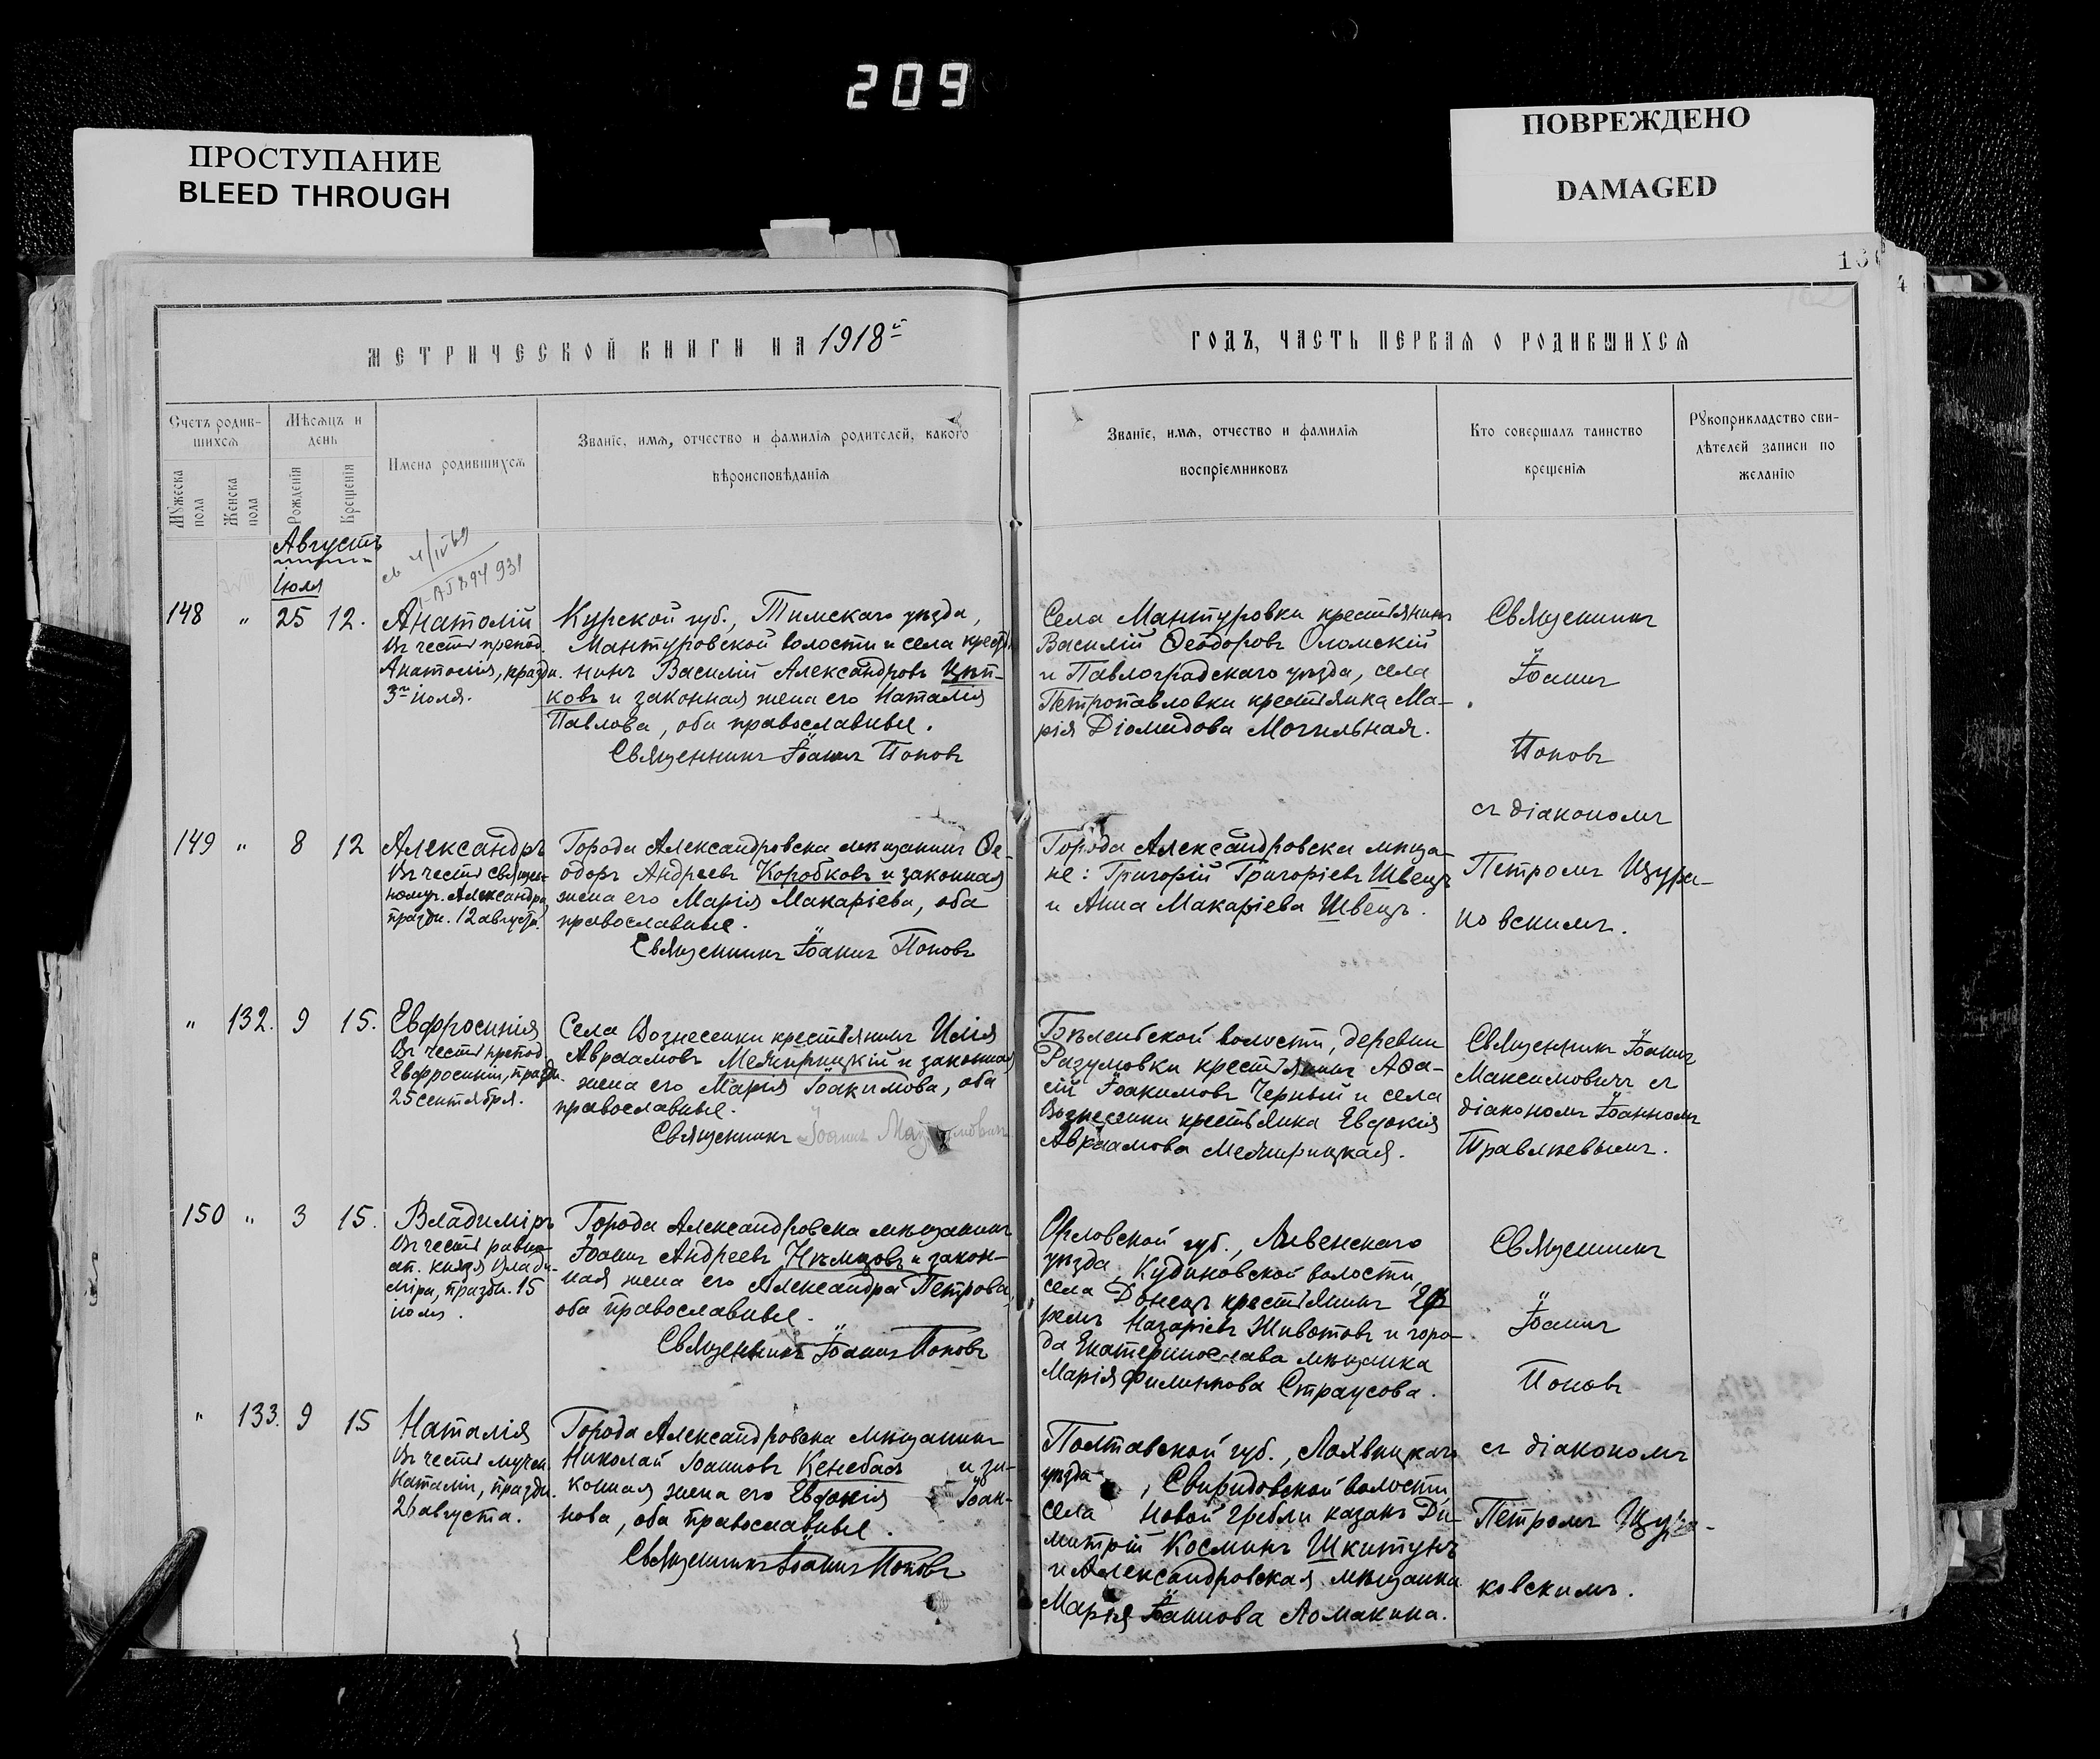 209
ПРОСТУПАНИЕ
BLEED THROUGH
ПОВРЕЖДЕНО
DAMAGED
4
МЕТРИЧЕСКОЙ КНИГИ НА 1918й
ГОДЪ, ЧАСТЬ ПЕРВАЯ О РОДИВШИХСЯ
Счетъ родив-
шихся
Мужеска пола
Женска пола
Мѣсяцъ и
день
Рожденія
Крещенія
Имена родившихся
Званіе, имя, отчество и фамилія родителей, какого
вѣроисповѣданія
Званіе, имя, отчество и фамилія
воспріемниковъ
Кто совершалъ таинство
крещенія
Рукоприкладство сви-
дѣтелей записи по
желанію
Августъ
Іюля
148 " 25 12.
Анатолій
Въ честь препод.
Анатолія, праздн.
3го іюля.
Курской губ., Тимскаго уѣзда,
Мантуровской волости и села крестья
нинъ Василій Александровъ Цып-
ковъ и законная жена его Наталія
Павлова, оба православные.
Священникъ Іоаннъ Поповъ
Села Мантуровки крестьянинъ
Василій Ѳеодоровъ Оломскій
и Павлоградскаго уѣзда, села
Петропавловки крестьянка Ма-
рія Діомидова Могильная.
Священникъ
Іоаннъ
Поповъ
съ діакономъ
149 " 8 12
Александръ
Въ честь священ-
номуч. Александра,
праздн. 12 августа.
Города Александровска мѣщанинъ Ѳе-
одоръ Андреевъ Коробковъ и законная
жена его Марія Макаріева, оба
православные.
Священникъ Іоаннъ Поповъ
Города Александровска мѣща
не: Григорій Григоріевъ Швецъ
и Анна Макаріева Швецъ.
Петромъ Щуры-
новскимъ.
" 132. 9 15.
Евфросинія
Въ честь препод.
Евфросиніи, праздн.
25 сентября.
Села Вознесенки крестьянинъ Илія
Авраамовъ Межирицкій и законная
жена его Марія Іоакимова, оба
православные.
Священникъ Іоаннъ
Бѣленбской волости, деревни
Разумовки крестьянинъ Аѳа-
сій Іоакимовъ Черный и села
Вознесенки крестьянка Евдокія
Авраамова Межирицкая.
Священникъ Іоаннъ
Максимовичъ съ
діакономъ Іоанномъ
Травляевымъ.
150 " 3 15.
Владиміръ
Въ честь равно-
ап. князя Влади-
міра, праздн. 15
іюля.
Города Александровска мѣщанинъ
Іоаннъ Андреевъ Нѣмцовъ и закон-
ная жена его Александра Петрова,
оба православные.
Священникъ Іоаннъ Поповъ
Орловской губ., Ливенскаго
уѣзда, Кудиновской волости,
села Донецъ крестьянинъ Еф
ремъ Назаріевъ Животовъ и горо-
да Екатеринослава мѣщанка
Марія Филиппова Страусова.
Священникъ
Іоаннъ
Поповъ
" 133. 9 15
Наталія
Въ честь мучен.
Наталіи, праздн.
26 августа.
Города Александровска мѣщанинъ
Николай Іоанновъ Кенебасъ и за-
конная жена его Евдокія Іоан-
нова, оба православные.
Священникъ Іоаннъ Поповъ
Полтавской губ., Лохвицкаго
уѣзда, Свиридовской волости,
села Новой Гребли казакъ Ди-
митрій Косминъ Шкитунъ
и Александровская мѣщанка
Марія Іоаннова Ломакина.
съ діакономъ
Петромъ Щуры-
ковскимъ.